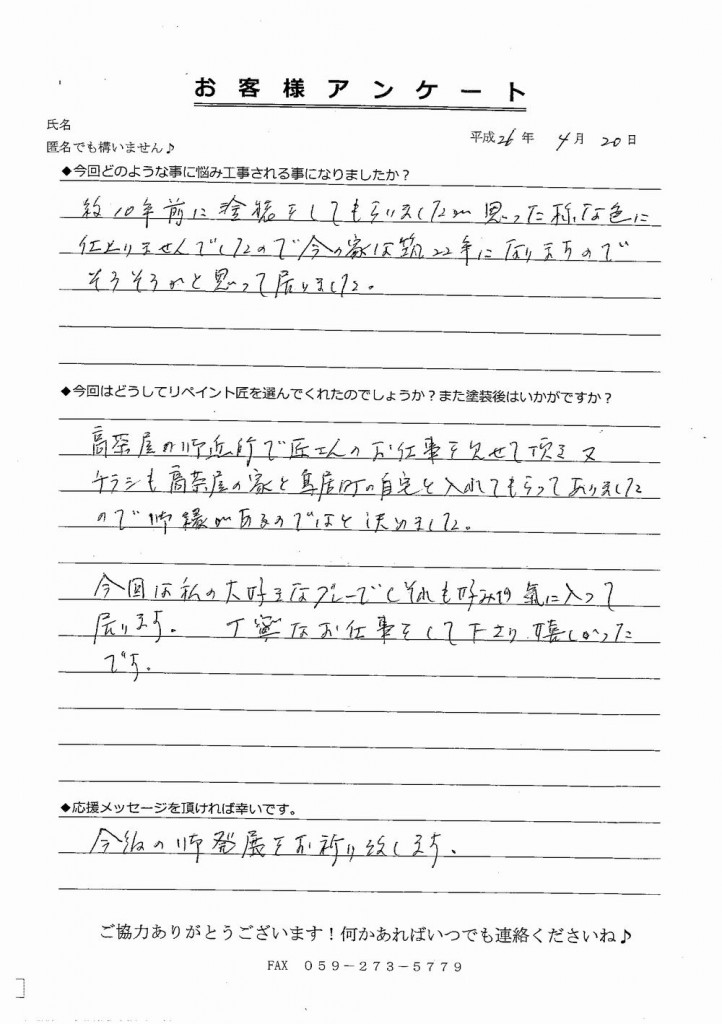 お客様アンケート
氏名
匿名でも構いません♪
平成26年 4月 20日
◆今回どのような事に悩み工事される事になりましたか？
約10年前に塗装をしてもらいましたが 思った様な色に
仕上りませんでしたので今の家は築22年になりますので
そろそろかと思って居りました。
◆今回はどうしてリペイント匠を選んでくれたのでしょうか？また塗装後はいかがですか？
高茶屋の御近所で匠さんのお仕事を見せて頂き 又
チラシも高茶屋の家と鳥居町の自宅と入れてもらってありました
ので御縁があるのではと決めました。
今回は私の大好きなグレーでしかも好みで氣に入って
居ります。 丁寧なお仕事をして下さり 嬉しかった
です。
◆応援メッセージを頂ければ幸いです。
今後の御発展をお祈り致します。
ご協力ありがとうございます！何かあればいつでも連絡くださいね♪
FAX 059－273－5779